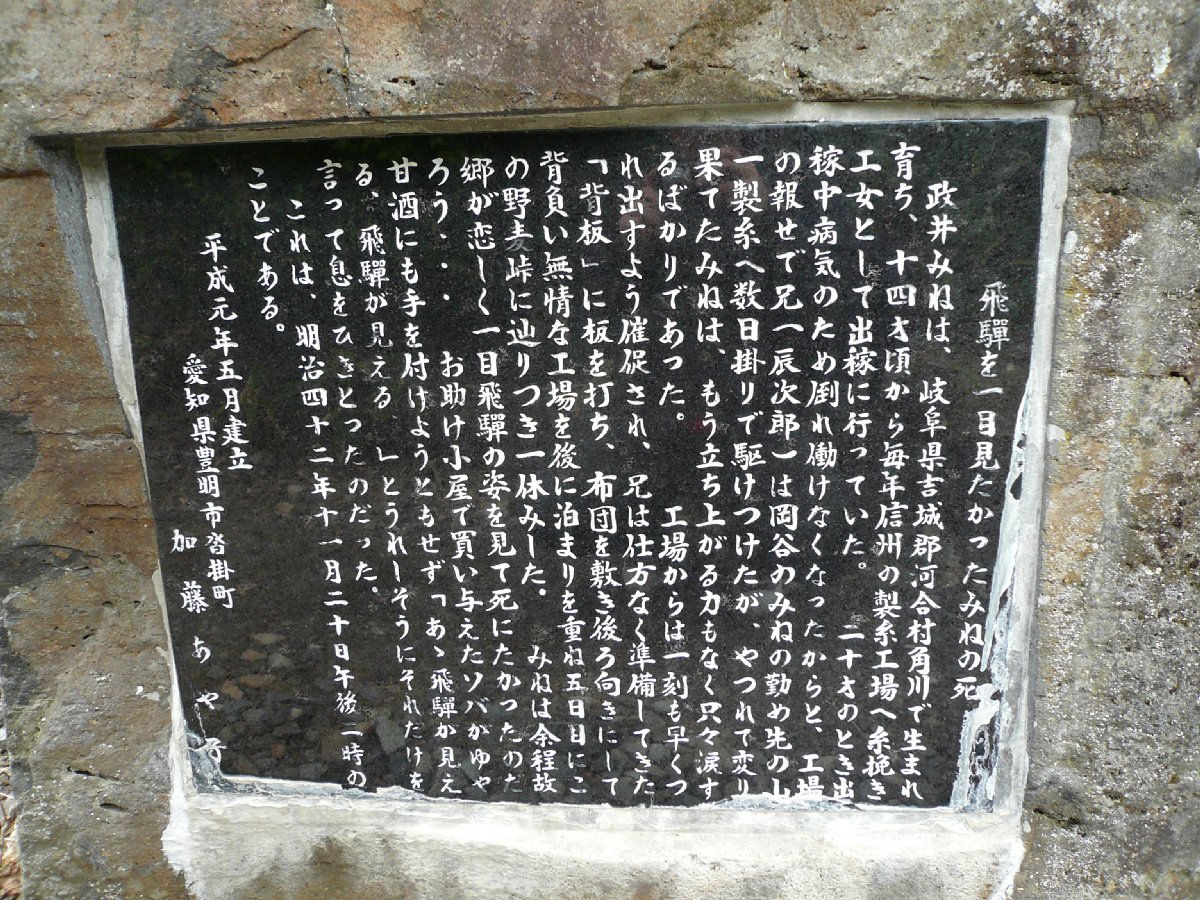 飛騨を一目見たかったみねの死
政井みねは、岐阜県吉城郡河合村角川で生まれ
育ち、十四才頃から毎年信州の製糸工場へ糸挽き
工女として出稼に行っていた。二十才のとき出
稼中病気のため倒れ働けなくなったからと、工場
の報せで兄一辰次郎一は岡谷のみねの勤め先の山
一製糸へ数日掛りで駆けつけたが、やつれて変り
果てたみねは、もう立ち上がる力もなく只々涙す
るばかりであった。工場からは一刻も早くつ
れ出すよう催促され、兄は仕方なく準備してきた
「背板」に板を打ち、布団を敷き後ろ向きにして
背負い無情な工場を後に泊まりを重ね五日目にこ
の野麦峠に辿りつき一休みした。みねは余程故
郷が恋しく一目飛騨の姿を見て死にたかったのだ
ろう・・・お助け小屋で買い与えたソバがゆや
甘酒にも手を付けようともせず「あゝ飛騨が見え
る、飛騨が見える」とうれしそうにそれだけを
言って息をひきとったのだった。
これは、明治四十二年十一月二十日午後二時の
ことである。
平成元年五月建立
愛知県豊明市沓掛町
加藤あや子